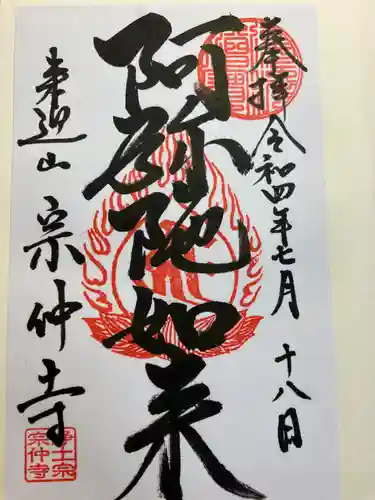 奉拝 令和四年七月 十八日
阿弥陀如来
来迎山 宗仲寺
浄土宗
宗仲寺